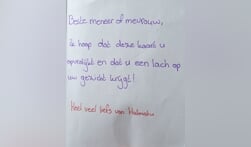 Beste meneer of mevrouw,
ik hoop dat deze kaart u
opvrolijkt en dat u een lach op
uw gezicht krijgt!
Heel veel liefs van